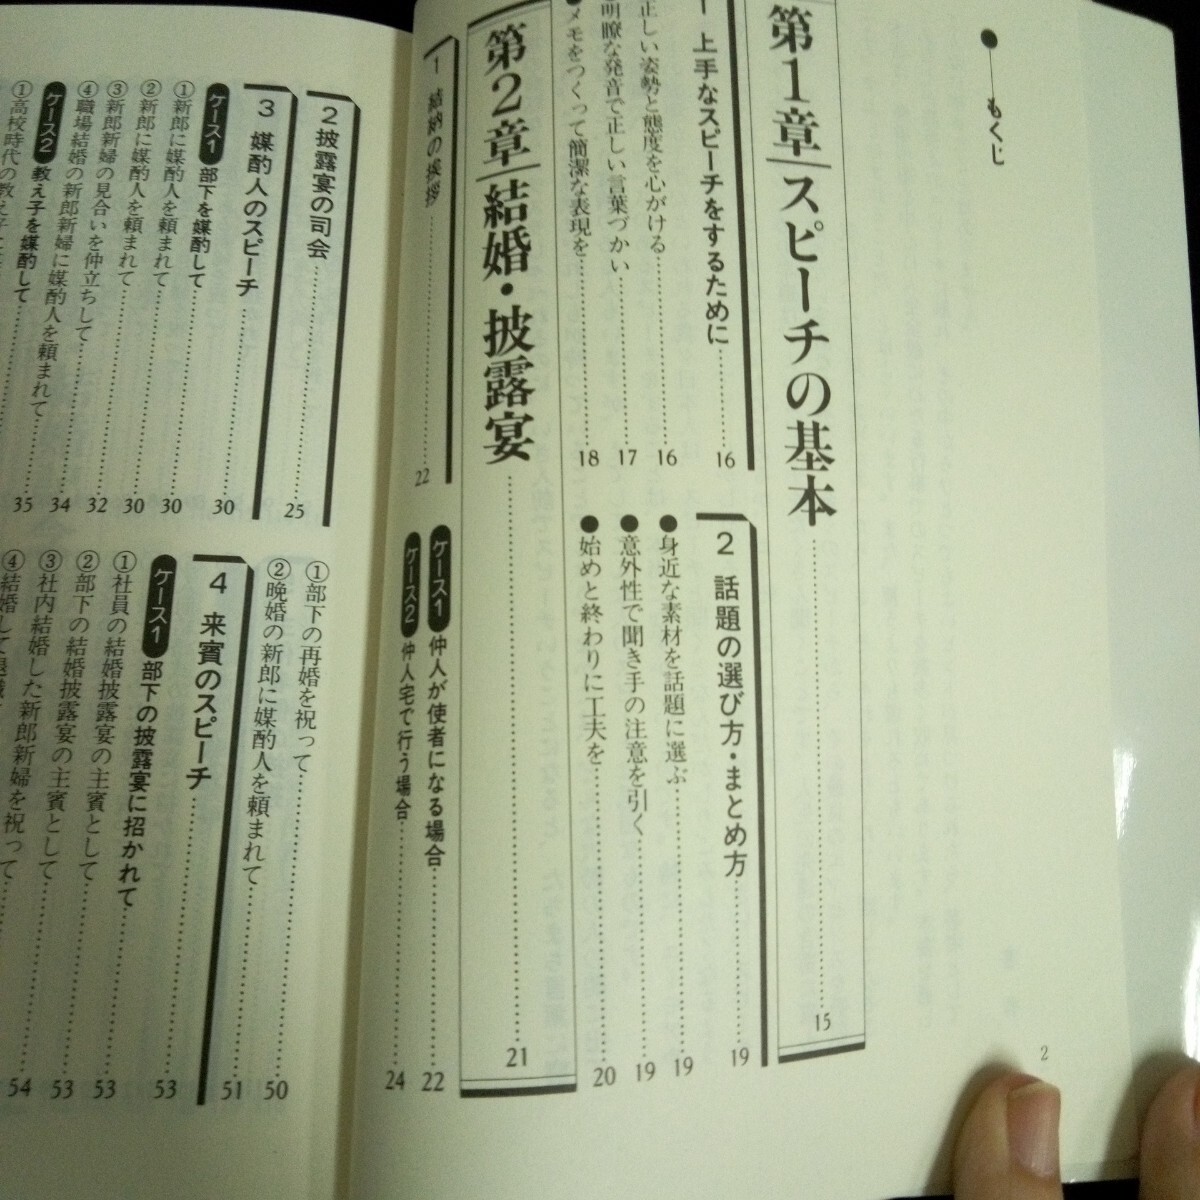 ●もくじ
第1章 スピーチの基本……15
1 上手なスピーチをするために……16
正しい姿勢と態度を心がける……16
明瞭な発音で正しい言葉づかい……17
●メモをつくって簡潔な表現を……18
2 話題の選び方・まとめ方……19
●身近な素材を話題に選ぶ……19
●意外性で聞き手の注意を引く……19
●始めと終わりに工夫を……20
第2章 結婚・披露宴……21
1 結納の挨拶……22
ケース1 仲人が使者になる場合……22
ケース2 仲人宅で行う場合……24
2
2 披露宴の司会……25
3 媒酌人のスピーチ……30
ケース1 部下を媒酌して……30
①新郎に媒酌人を頼まれて……30
②新郎に媒酌人を頼まれて……30
③新郎新婦の見合いを仲立ちして……32
④職場結婚の新郎新婦に媒酌人を頼まれて……34
ケース2 教え子を媒酌して……35
①高校時代の教え子
①部下の再婚を祝って……50
②晩婚の新郎に媒酌人を頼まれて……51
4 来賓のスピーチ……53
ケース1 部下の披露宴に招かれて……53
①社員の結婚披露宴の主賓として……53
②部下の結婚披露宴の主賓として……53
③社内結婚した新郎新婦を祝って……54
④結婚して退職